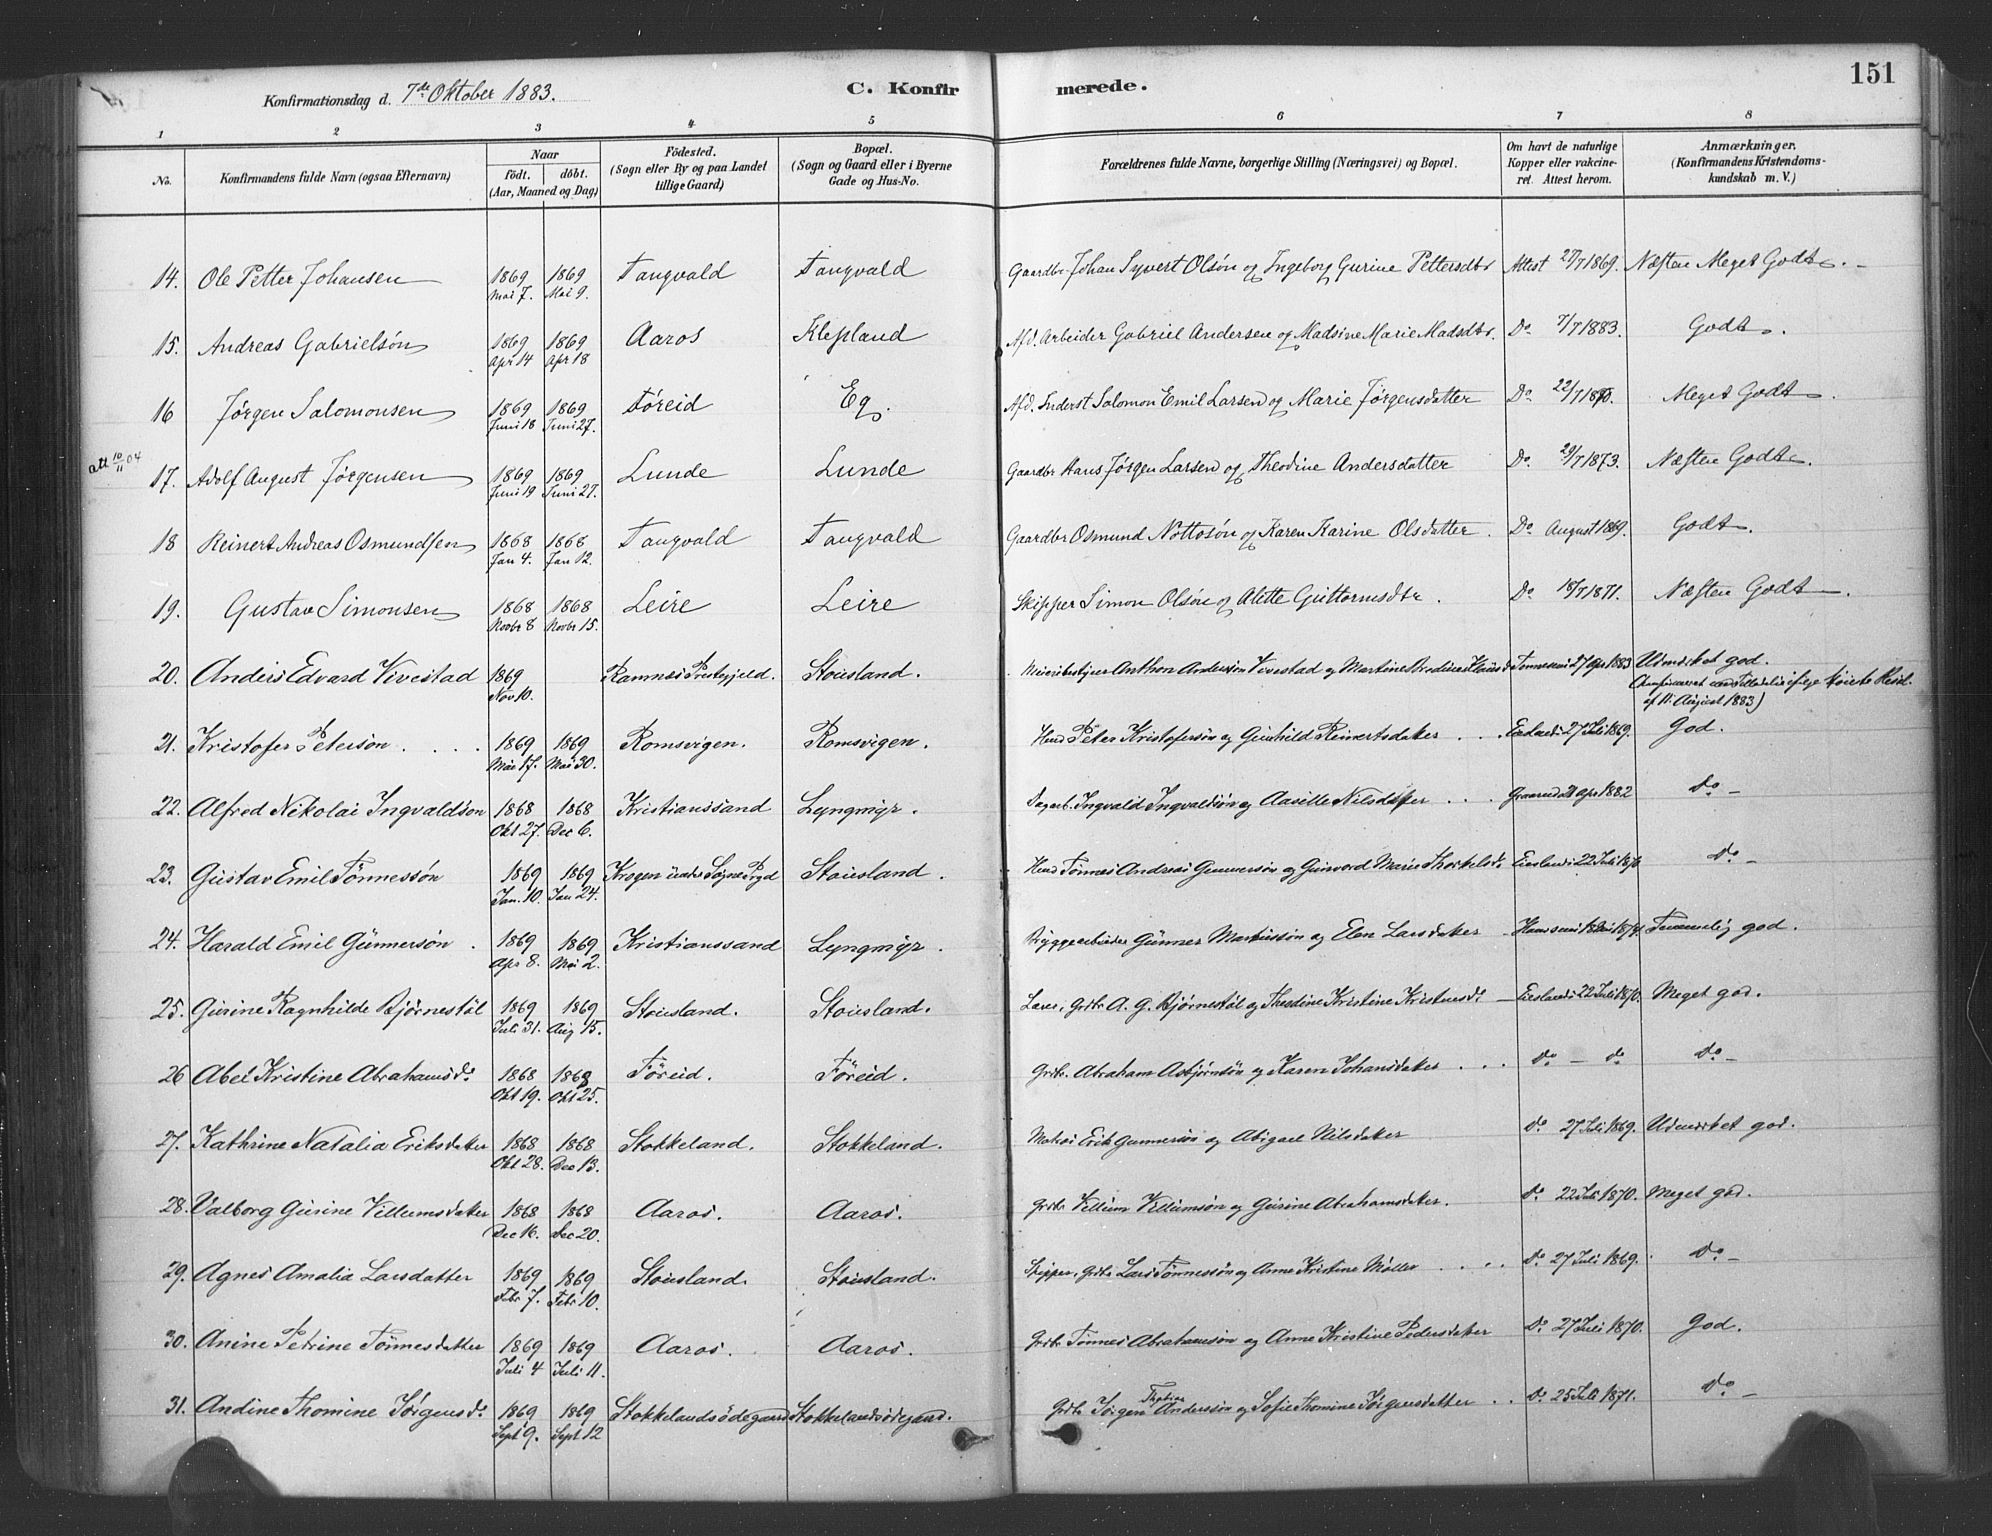 151
Konfirmationsdag d. 7de Oktober 1883.
C. Konfirmerede.
1 2 3 4 5 6 7 8
No. Konfirmandens fulde Navn (ogsaa Efternavn) Naar født. døbt. (Aar, Maaned og Dag) Födested. (Sogn eller By og paa Landet tillige Gaard) Bopæl. (Sogn og Gaard eller i Byerne Gade og Hus-No. Forældrenes fulde Navne, borgerlige Stilling (Næringsvei) og Bopæl. Om havt de naturlige Kopper eller vakcineret. Attest herom. Anmærkninger. (Konfirmandens Kristendomskundskab m. V.)
14. Ole Petter Johansen 1869 Mai 7. 1869 Mai 9. Tangvald Tangvald Gaardbr. Johan Syvert Olsön og Ingeborg Gurine Pettersdtr Attest 27/7 1869. Næsten Meget Godt.
15. Andreas Gabrielsön 1869 Apr 14 1869 Apr 18 Aaros Klepland Afd. Arbeider Gabriel Andersen og Madsine Marie Madsdtr. Do 7/7 1883. Godt.
16 Jørgen Salomonsen 1869 Juni 18 1869 Juni 27. Føreid Eg. Afd. Inderst Salomon Emil Larsen og Marie Jørgensdatter Do 22/7 1870. Meget Godt.
att 10/11 04
17. Adolf August Jørgensen 1869 Juni 19 1869 Juni 27. Lunde Lunde Gaardbr Hans Jørgen Larsen og Theodine Andersdatter Do 29/7 1873. Næsten Godt.
18 Reinert Andreas Osmundsen 1868 Jan 4. 1868 Jan 12. Tangvald Tangvald Gaardbr Osmund Nottosön og Karen Karine Olsdatter. Do August 1869. Godt.
19. Gustav Simonsen 1868 Novbr 8 1868 Novbr 15. Leire Leire Skipper Simon Olsön og Alette Guttormsdtr. Do 18/7 1871. Næsten Godt.
20. Anders Edvard Vivestad 1869 Nov 10. Ramnes Prestegjeld. Stousland. Meieribestyrer Anthon Anderssön Vivestad og Martine Bredine 27 Apr 1883 Udmærket god.
af 11 August 1883)
21. Kristofer Petersön . . . . 1869 Mai 17. 1869 Mai 30. Romsvigen. Romsvigen. Hmd Peter Kristofersön og Gunhild Reinertsdatter . . . 27 Juli 1869. God.
22. Alfred Nikolai Ingvaldsön 1868 Okt 27. 1868 Dec 6. Kristianssand Lyngmyr. Dagarb. Ingvald Ingvaldsön og Aasille Nilsdatter . . . 21 Apr 1882 do –
23. Gustav Emil Tönnessön 1869 Jan. 10. 1869 Jan 24. Krogen under Søgne Prgd Stousland. Hmd Tönnes Andreas Gunnersön og Gunvord Marie Thorkelsdr Eieslandi 22 Juli 1870 do –
24. Harald Emil Gunnersön. 1869 Apr 8. 1869 Mai 2. Kristianssand Lyngmyr. Bryggearbeider Gunner Markussön og Elen Larsdatter 1874. Temmelig god.
25. Gurine Ragnhilde Bjørnestøl 1869 Juli 31. 1869 Aug 15. Stousland. Stousland. Lærer, Grdbr A. G. Bjørnestøl og Theodine Kristine Kristensdr – Eieslandi 22 Juli 1870. Meget god.
26 Abel Kristine Abrahamsdr 1868 Okt 19. 1868 Okt 25. Føreid. Føreid. Grdbr. Abraham Asbjørnsön og Karen Johansdatter . . . do – do do –
27. Kathrine Natalia Eriksdatter 1868 Okt 28. 1868 Dec 13. Stokkeland. Stokkeland. Matros Erik Gunnersön og Abigael Nilsdatter do 27 Juli 1869. Udmærket god.
28. Valborg Gurine Villumsdatter 1868 Dec 16. 1868 Dec 20. Aaros. Aaros. Grdbr Villum Villumsön og Gurine Abrahamsdatter. do 22 Juli 1870. Meget god.
29. Agnes Amalia Larsdatter 1869 Febr 7. 1869 Febr 10. Stousland. Stousland. Skipper, Grdbr Lars Tönnessön og Anne Kristine Møller . . . . do 27 Juli 1869. do –
30. Anine Petrine Tönnesdatter 1869 Juli 4 1869 Juli 11. Aaros. Aaros. Grdbr Tönnes Abrahamsön og Anne Kristine Pedersdatter do 27 Juli 1870. God.
31. Andine Thomine Jørgensdr 1869 Sept 9. 1869 Sept 12 Stokkelandsødegaard Stokkelandsødegaard. Grdbr Jørgen Tobias Anderssön og Sofie Thomine Jørgensdatter . . do 25 Juli 1871. do –